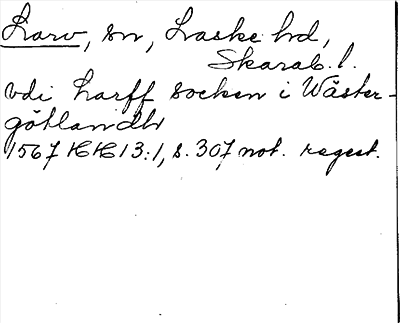 Larv, sn, Laske hd,
Skarab. l.
vdi Larff socken i Wäster-
götlandh
1567 HH 13:1, s. 307 not. regest.